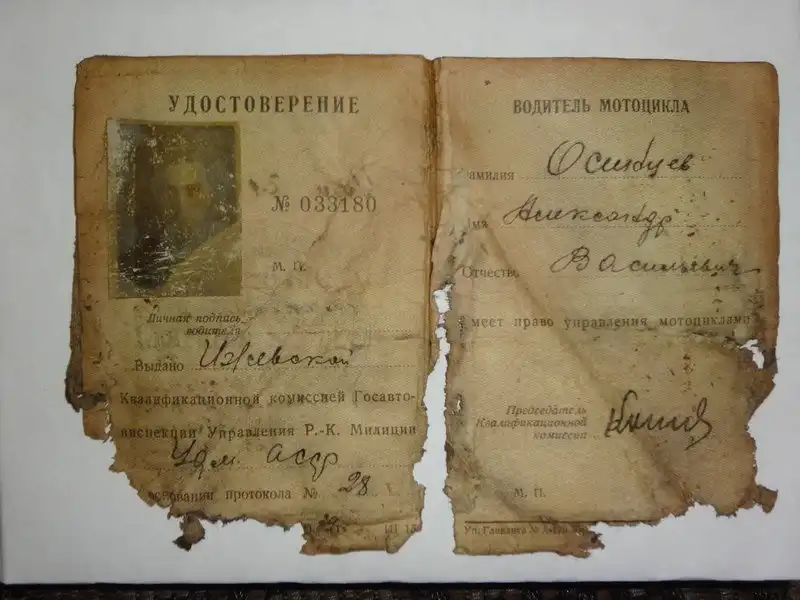 УДОСТОВЕРЕНИЕ
№ 033180
М. П.
Личная подпись
водителя
Выдано Ижевской
Квалификационной комиссией Госавто-
инспекции Управления Р.-К. Милиции
Удм АССР
основании протокола № 28
ВОДИТЕЛЬ МОТОЦИКЛА
амилия Осинцев
мя Александр
Отчество Васильевич
меет право управления мотоциклами
Председатель
Квалификационной
комиссии
М. П.